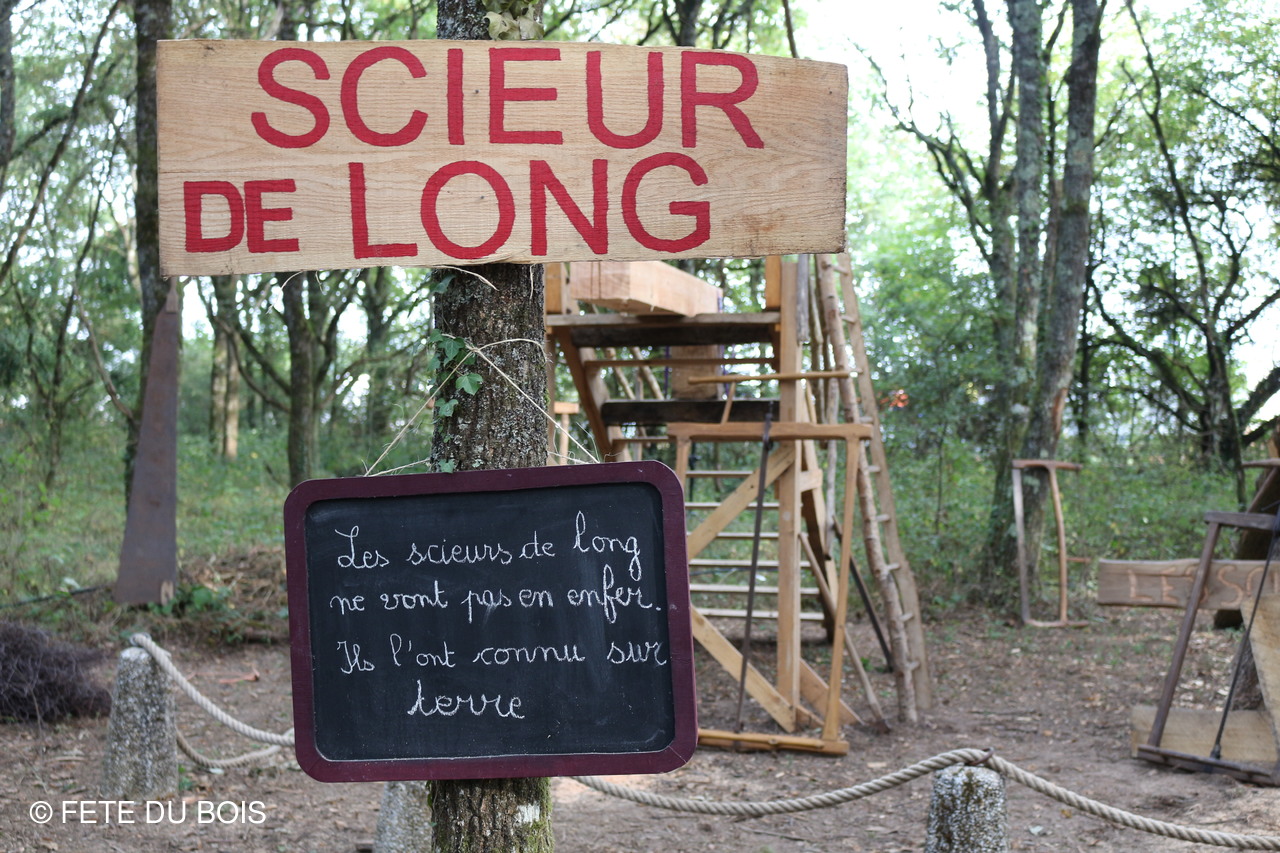 SCIEUR
DE LONG
Les scieurs de long
ne vont pas en enfer.
Ils l'ont connu sur
terre
LE SC
© FETE DU BOIS